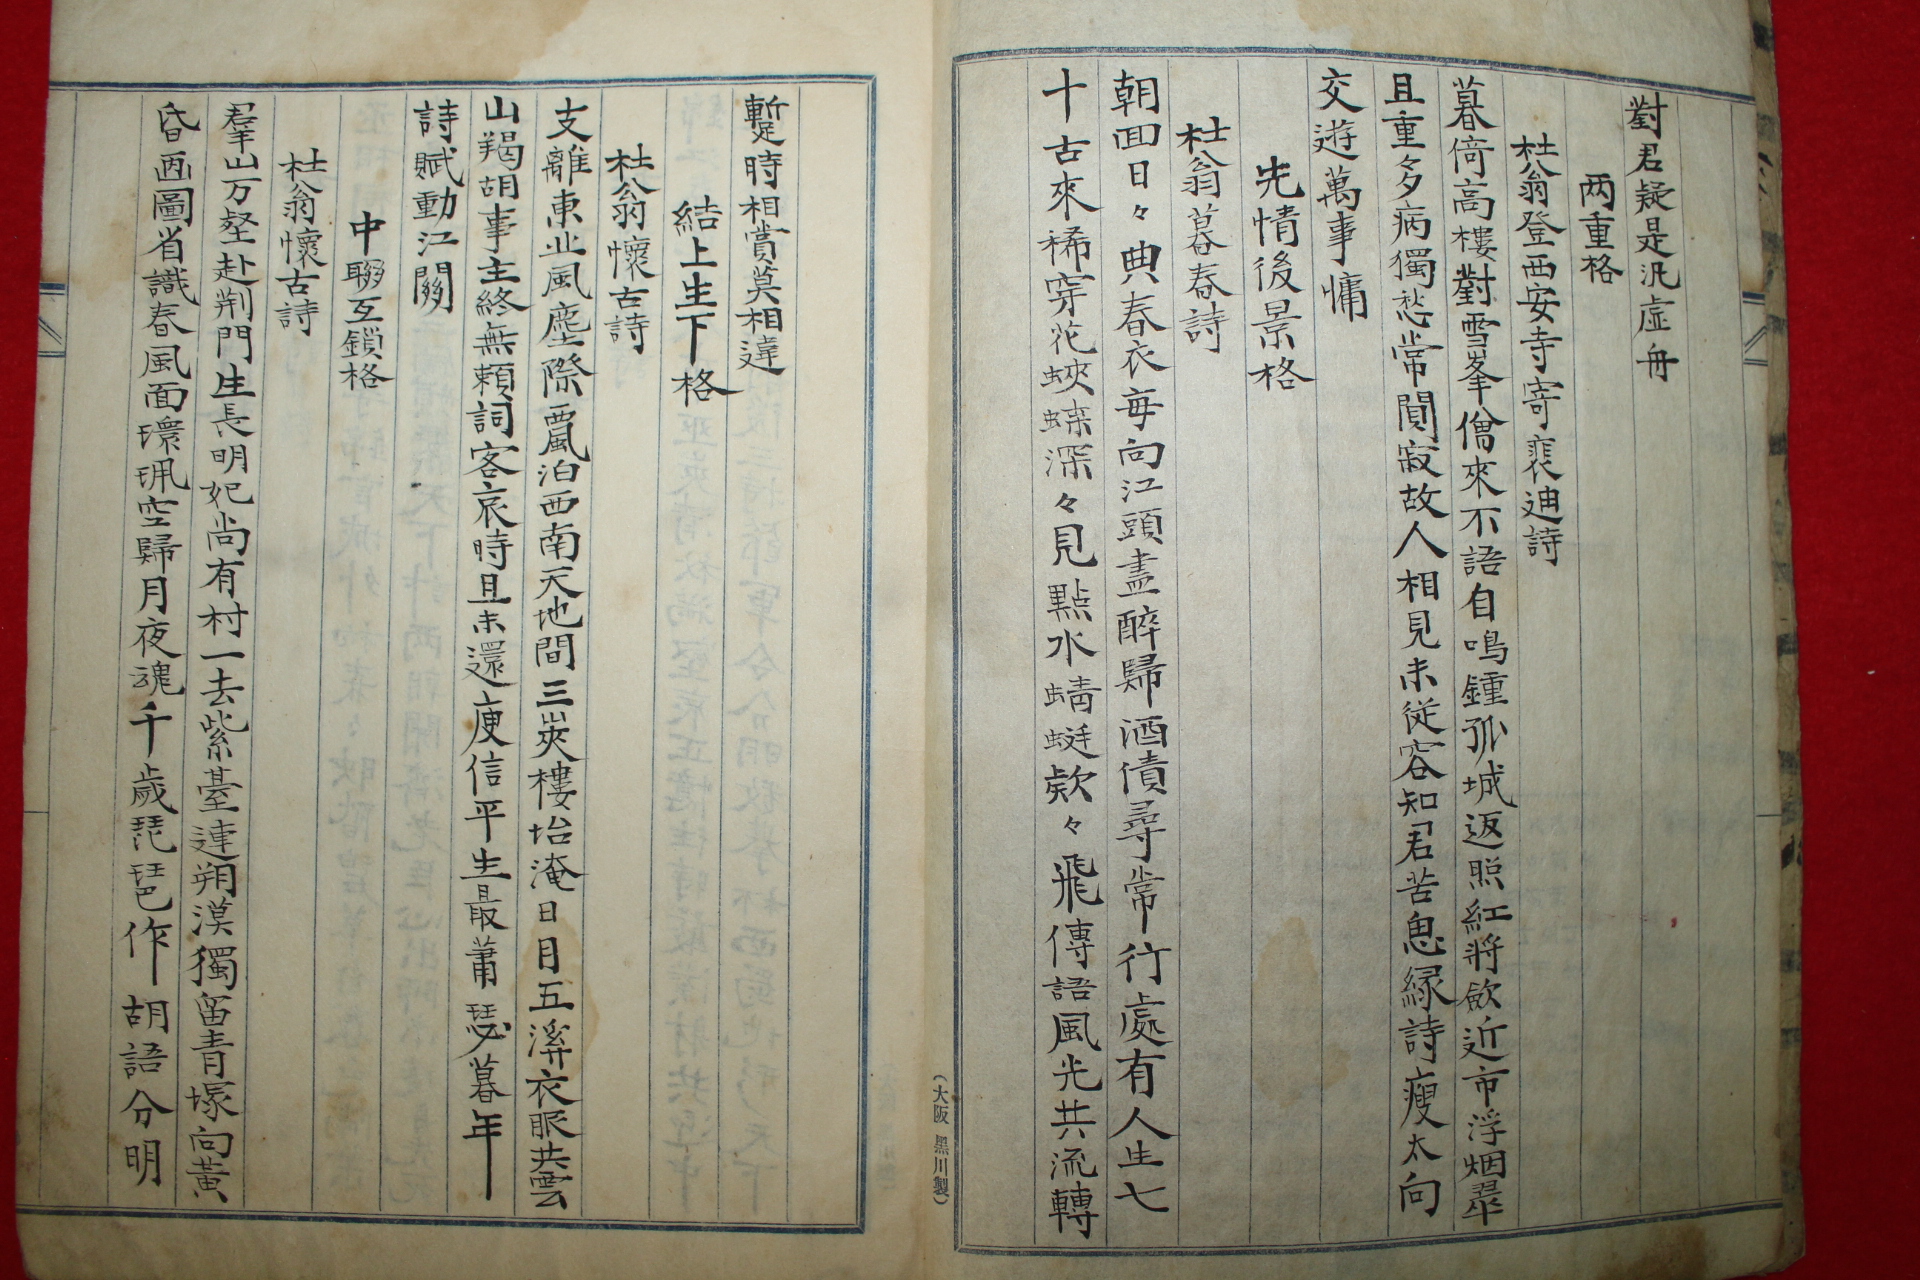 對君疑是汎虛舟
两重格
杜翁登西安寺寄裴迪詩
暮倚高樓對雪峯僧來不語自鳴鍾孤城返照紅將斂近市浮烟翠
且重多病獨愁常闃寂故人相見未從容知君苦思緣詩瘦太向
交遊萬事慵
先情後景格
杜翁暮春詩
朝回日々典春衣每向江頭盡醉歸酒債尋常行處有人生七
十古來稀穿花蛺蝶深々見點水蜻蜓欵々飛傳語風光共流轉
(大阪 黑川製)
暫時相賞莫相違
結上生下格
杜翁懷古詩
支離東北風塵際飄泊西南天地間三峽樓坮淹日月五溪衣服共雲
山羯胡事主終無賴詞客哀時且未還庾信平生最蕭瑟暮年
詩賦動江關
中聯互鎖格
杜翁懷古詩
羣山万壑赴荆門生長明妃尚有村一去紫臺連朔漠獨留青塚向黃
昏画圖省識春風面環珮空歸月夜魂千歲琵琶作胡語分明